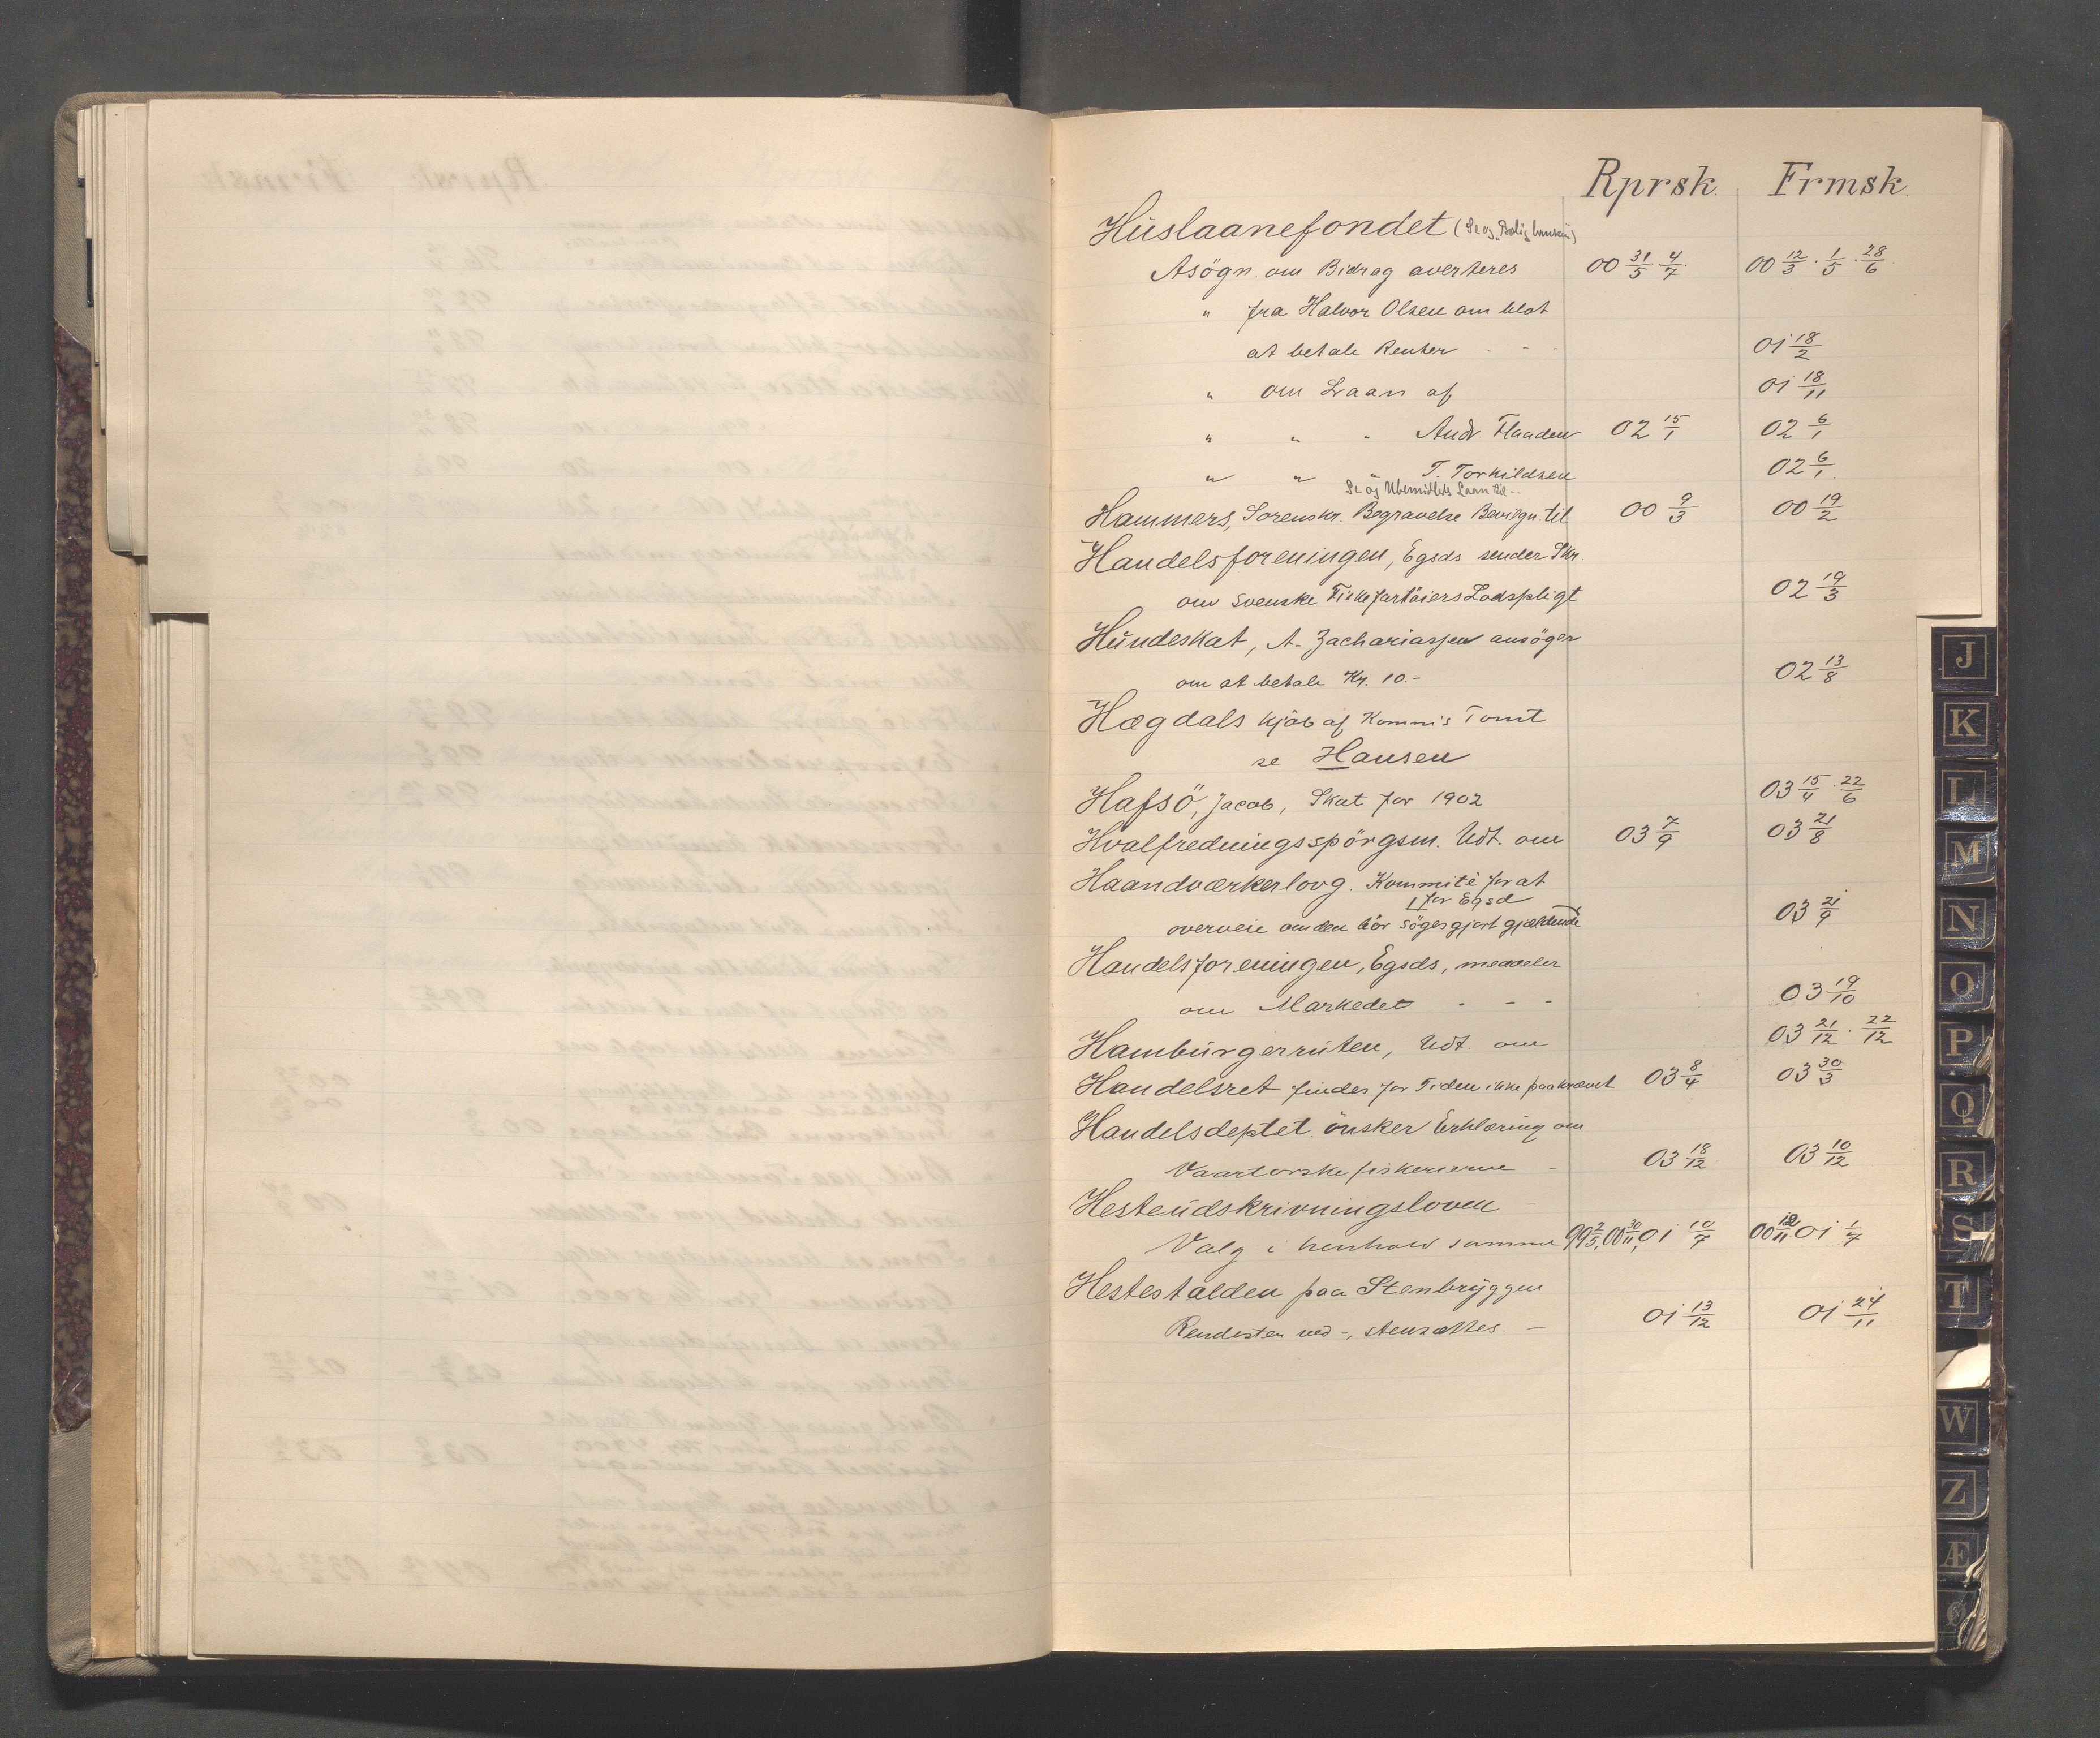 Rprsk. Frmsk.
Huslaanefondet (Se og
Asögn. om Bidrag averteres 00 31/5 · 4/7 00 12/3 · 1/5 · 28/6
" fra Halvor Olsen om blot
at betale Renter - - - 01 18/2
" om Laan af 01 18/11
" " " Andr Flaaden 02 15/1 02 6/1
" " " T. Torkildsen 02 6/1
Se og Ubemidlets Laan til --
Hammers, Sorenskr. Begravelse Bevilgn. til 00 9/3 00 19/2
Handelsforeningen, Egsds sender Skr.
om svenske Fiskefartöiers Lodspligt 02 19/3
Hundeskat, A. Zachariassen ansöger
om at betale Kr. 10.- 02 13/8
Hægdals kjöb af Komm's Tomt
se Hansen
Hafsö, Jacob, Skat for 1902 03 15/4 · 22/6
Hvalfredningsspörgsm. Udt. om 03 7/9 03 21/8
Haandværkerlovg. Kommitè for at
for Egsd
overveie om den bör söges gjort gjældende 03 21/9
Handelsforeningen, Egsds, meddeler
om Markedet - - - 03 19/10
Hamburgerruten, Udt. om 03 21/12 · 22/12
Handelsret findes for Tiden ikke paakrævet 03 8/4 03 30/3
Handelsdeptet önsker Erklæring om
Vaartorskefiskerierne - 03 18/12 03 10/12
Hesteudskrivningsloven -
Valg i henhold samme 99 2/5, 00 30/11, 01 10/7 00 12/11 01 1/7
Hestestalden paa Stenbryggen
Rendesten ved -, stensættes. - 01 13/12 01 24/11
J
K
L
M
N
O
P
Q
R
S
T
W
Z
Æ
Ø